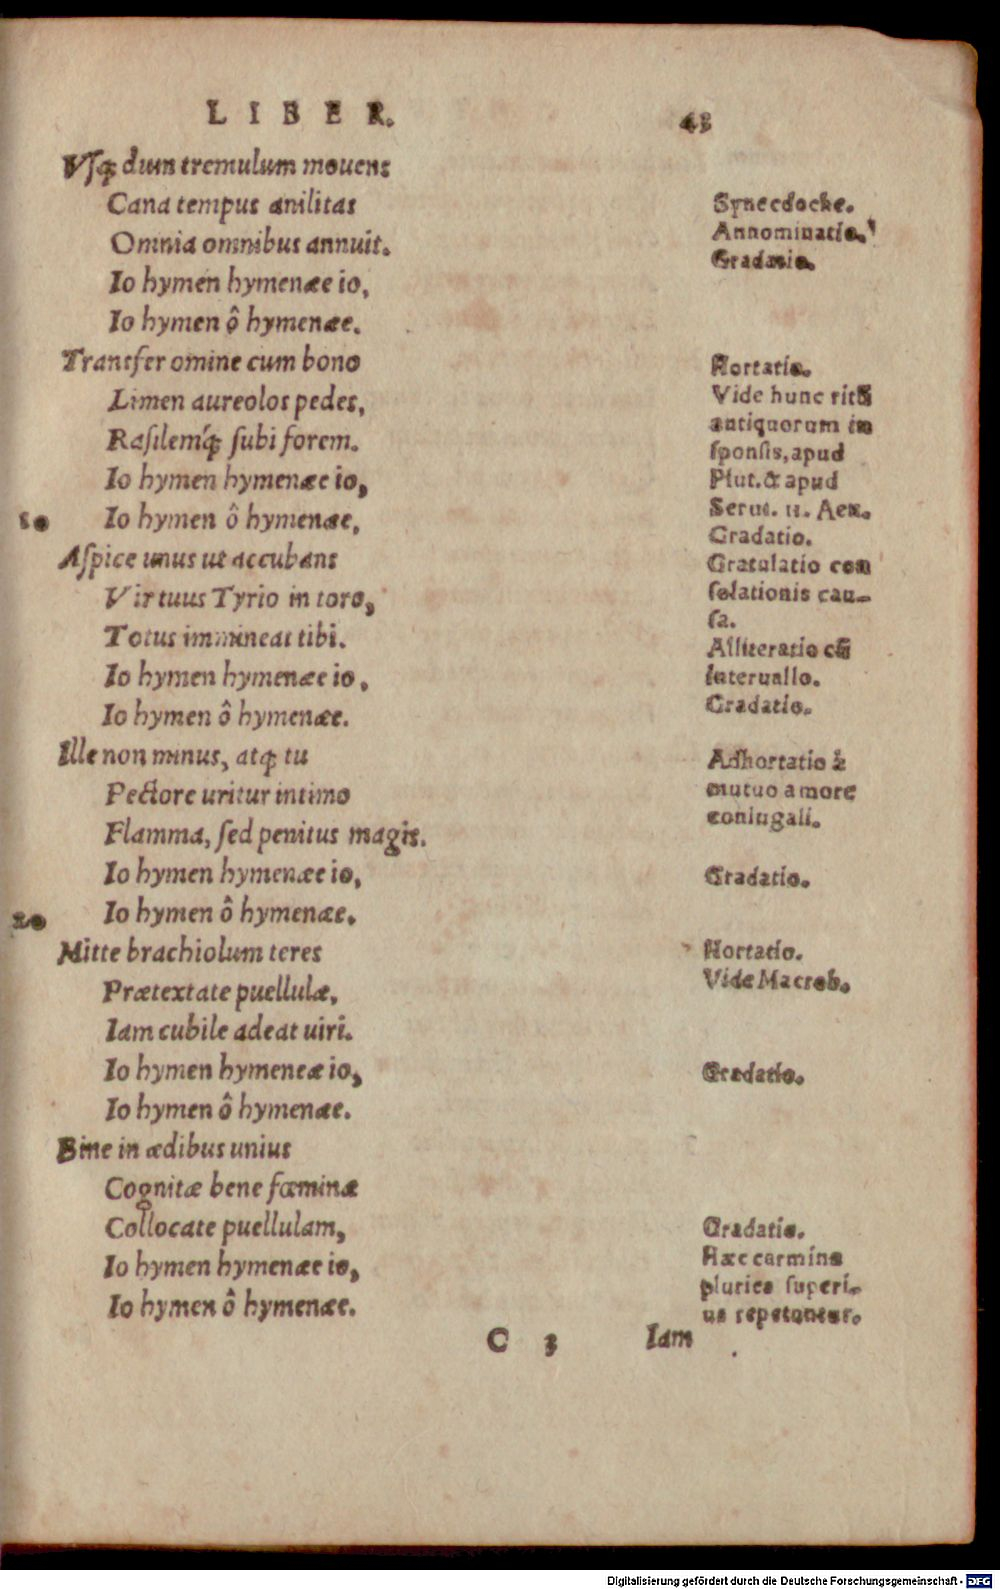 LIBER. 43
Vſq́; dum tremulum mouens
Cana tempus anilitas
Omnia omnibus annuit.
Io hymen hymenæe io,
Io hymen ô hymenæe.
Transfer omine cum bono
Limen aureolos pedes,
Raſilemq́; ſubi forem.
Io hymen hymenæe io,
10 Io hymen ô hymenæe,
Aſpice unus ut accubans
Vir tuus Tyrio in toro,
Totus immineat tibi.
Io hymen hymenæe io,
Io hymen ô hymenæe.
Ille non minus, atq; tu
Pectore uritur intimo
Flamma, ſed penitus magis.
Io hymen hymenæe io,
20 Io hymen ô hymenæe.
Mitte brachiolum teres
Prætextate puellulæ,
Iam cubile adeat uiri.
Io hymen hymeneæ io,
Io hymen ô hymenæe.
Bine in ædibus unius
Cognitæ bene fœminæ
Collocate puellulam,
Io hymen hymenæe io,
Io hymen ô hymenæe.
Synecdoche.
Annominatio.
Gradatio.
Hortatio.
Vide hunc ritū
antiquorum in
ſponſis, apud
Plut. & apud
Serui. 11. Aen.
Gradatio.
Gratulatio con
ſolationis cau-
ſa.
Alliteratio cū
interuallo.
Gradatio.
Adhortatio à
mutuo amore
coniugali.
Gradatio.
Hortatio.
Vide Macrob.
Gradatio.
Gradatio.
Hæc carmina
pluries ſuperi-
us repetuntur.
C 3 Iam
Digitalisierung gefördert durch die Deutsche Forschungsgemeinschaft - DFG